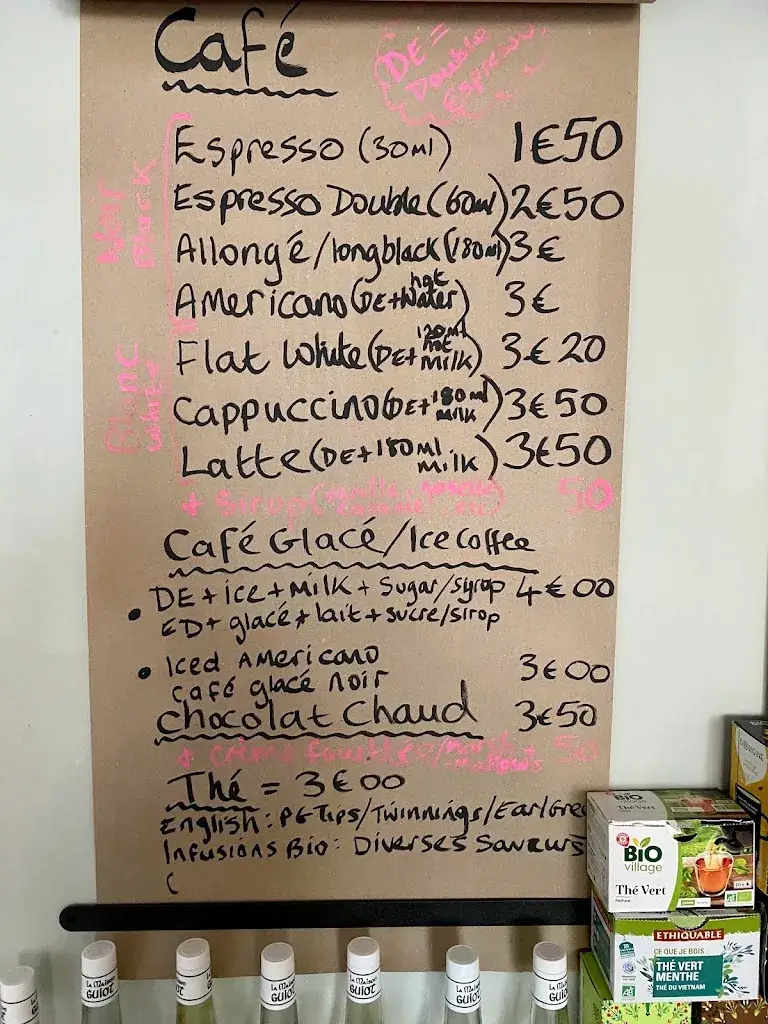 Café
DE =
Double
Espresso
Noir
Black
Espresso (30ml) 1€50
Espresso Double (60ml) 2€50
Allongé/longblack (180ml) 3€
Americano (DE + hot water) 3€
Blanc
white
Flat White (DE + 120ml hot milk) 3€20
Cappuccino (DE + 180ml milk) 3€50
Latte (DE + 180ml milk) 3€50
+ Sirop (vanille, etc) 50
Café Glacé/Ice Coffee
• DE + ice + milk + sugar/syrop 4€00
ED + glacé + lait + sucre/sirop
• Iced Americano 3€00
café glacé noir
Chocolat Chaud 3€50
+ crème fouettée/Marsh-mallows 50
Thé = 3€00
English: PG Tips/Twinnings/Earl Gre
Infusions Bio: Diverses Saveurs
(
BiO
village
Thé Vert
Nature
ETHIQUABLE
CE QUE JE BOIS
THÉ VERT
MENTHE
THÉ DU VIETNAM
La Maison
GUIOT
La Maison
GUIOT
La Maison
GUIOT
La Maison
GUIOT
La Maison
GUIOT
La Maison
GUIOT